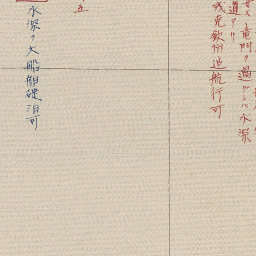 安ス竜門ヲ過グレバ水深
道アリ
茂克欽州迠航行可
五
水深ク大船舶碇泊可